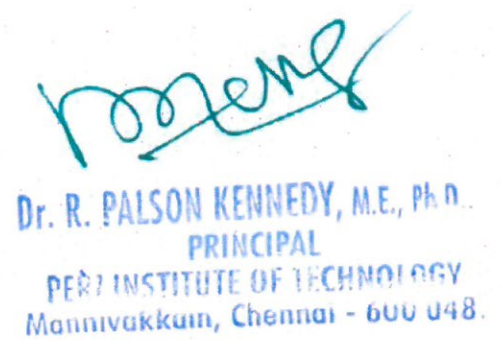 Dr. R. PALSON KENNEDY, M.E., Ph.D.
PRINCIPAL
PERI INSTITUTE OF TECHNOLOGY
Mannivakkam, Chennai - 600 048.